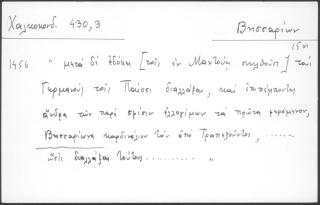 Χαλκοκονδ. 430,3
Βησσαρίων
1456 " μετὰ δὲ ἐδόκει [τοῖς ἐν Μαντούῃ] τοὺς
Γερμανοὺς τοῖς Παίοσι διαλλάξαι, καὶ ἐπιπέμποντες
ἄνδρα τῶν παρὰ σφίσιν ἐλλογίμων τὰ πρῶτα φερόμενον,
Βησσαρίωνα καρδινάλιον τὸν ἀπὸ Τραπεζοῦντος, .......
ὥστε διαλλάξαι τούτους .......... "